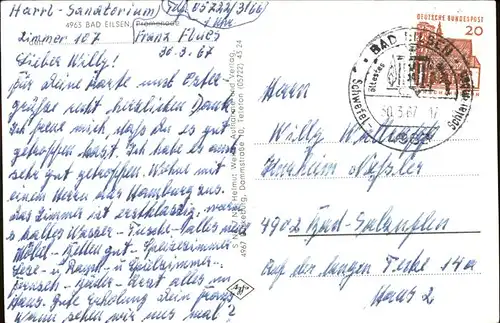 Harrl-Sanatorium) Tel. 05722/3166/
4963 BAD EILSEN, Promenade
1 Uhr
Zimmer 107 Franz Flues
30.3.67
Lieber Willy!
Für Deine Karte und Oster-
grüße recht herzlichen Dank.
Ich freue mich, daß Du es gut
getroffen hast. Ich habe es auch
sehr gut getroffen. Wohne mit
einem Herrn aus Hamburg zus.
Das Zimmer ist erstklassig, warm
u kaltes Wasser - Dusche - alles neue
Möbel - Betten gut - Speisezimmer -
Lese- u Rauch- u Spielzimmer -
Fernseh - Bäder - Arzt alles im
Haus. Gute Erholung Dein Franz
Wann sehen wir uns mal?
4967 Bückeburg, Dammstraße 10, Telefon (05722) 45 24
DEUTSCHE BUNDESPOST
20
BAD EILSEN
Schwefel
Schlamm
30.3.67
Herrn
Willy
4902 Bad-Salzuflen
Auf der langen 14a
Haus 2